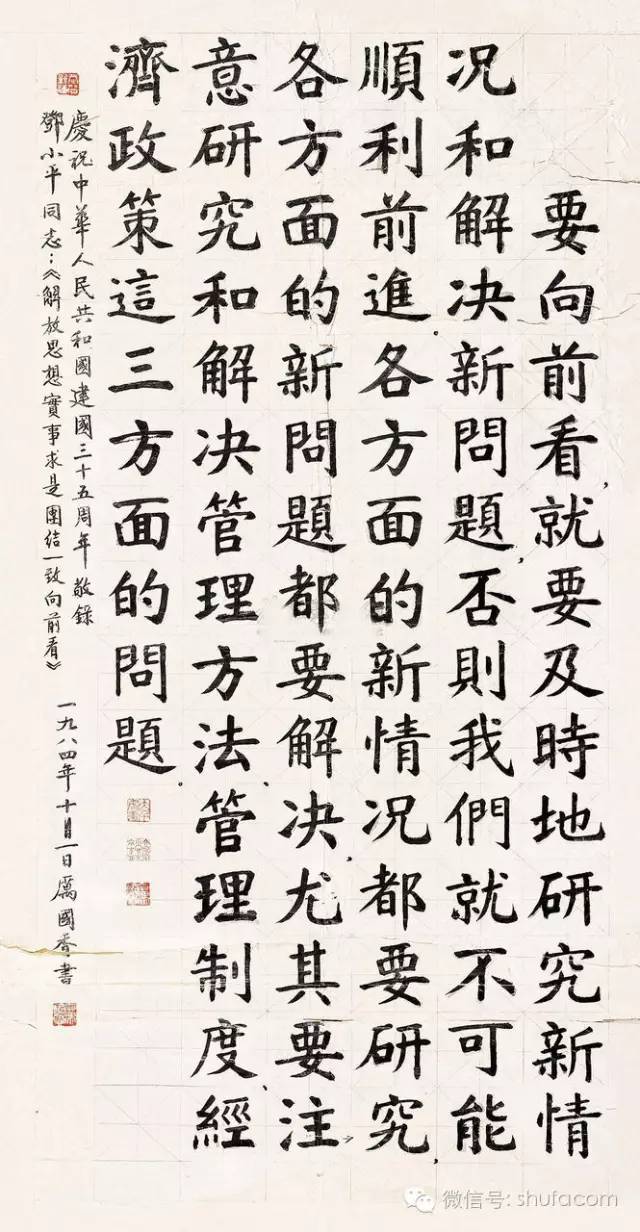 要向前看就要及時地研究新情
况和解决新問題否則我們就不可能
順利前進各方面的新情况都要研究
各方面的新問題都要解决尤其要注
意研究和解决管理方法管理制度經
濟政策這三方面的問題
慶祝中華人民共和國建國三十五周年敬錄
鄧小平同志：《解放思想實事求是團結一致向前看》
一九八四年十月一日厲國香書
微信号: shufacom